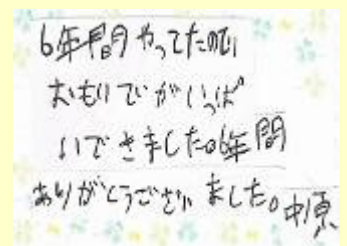 6年間やってたので
おもいでがいっぱ
いできました。6年間
ありがとうございました。中原